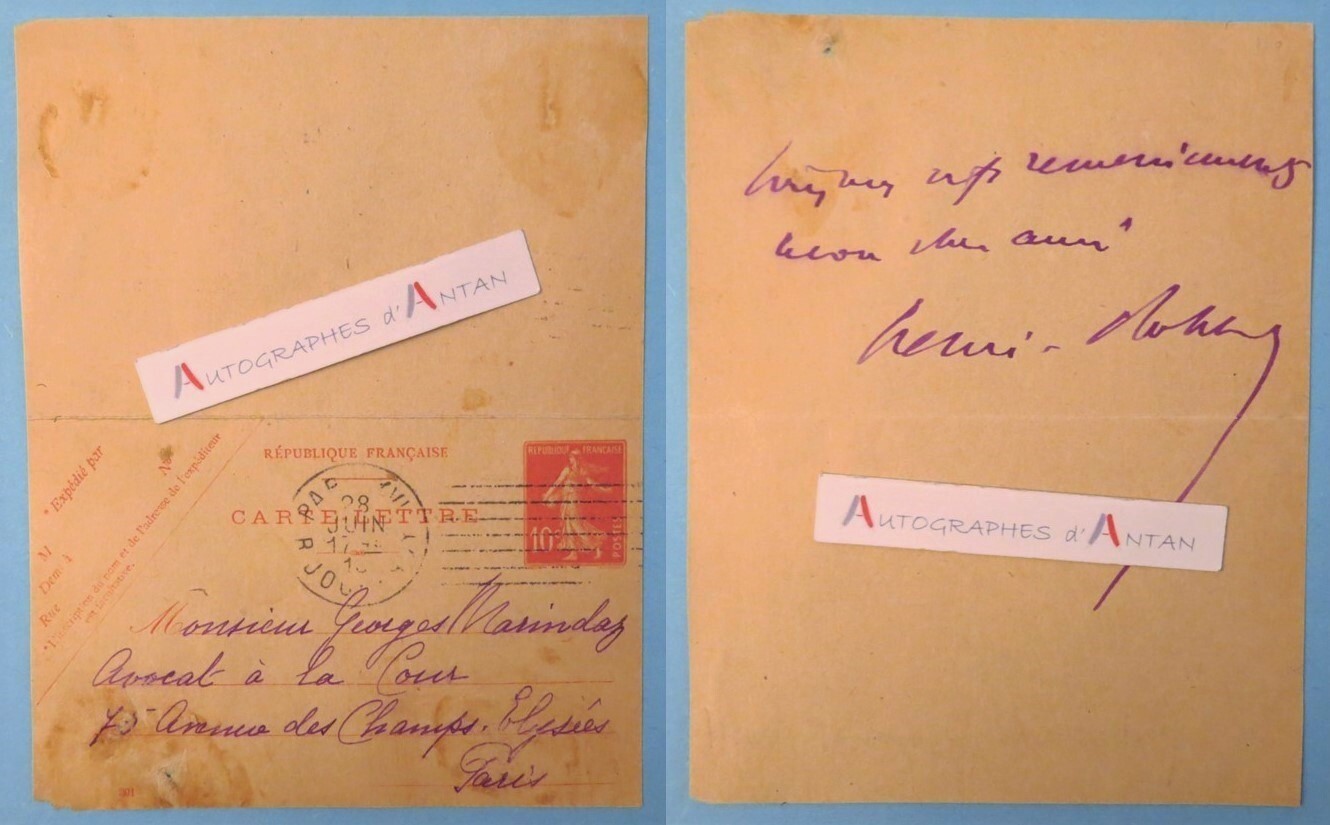 AUTOGRAPHES d'ANTAN
* Expédié par
M
Dem<sup>t</sup> à
Rue
N<sup>o</sup>
* L'inscription du nom et de l'adresse de l'expéditeur
est facultative.
RÉPUBLIQUE FRANÇAISE
CARTE-LETTRE
RÉPUBLIQUE FRANÇAISE
10c
POSTES
PAR
28
JUIN
17
R. JOU
Monsieur Georges Marindaz
Avocat à la Cour
75 Avenue des Champs-Elysées
Paris
301
remerciements
mon cher ami
henri-Robert
AUTOGRAPHES d'ANTAN